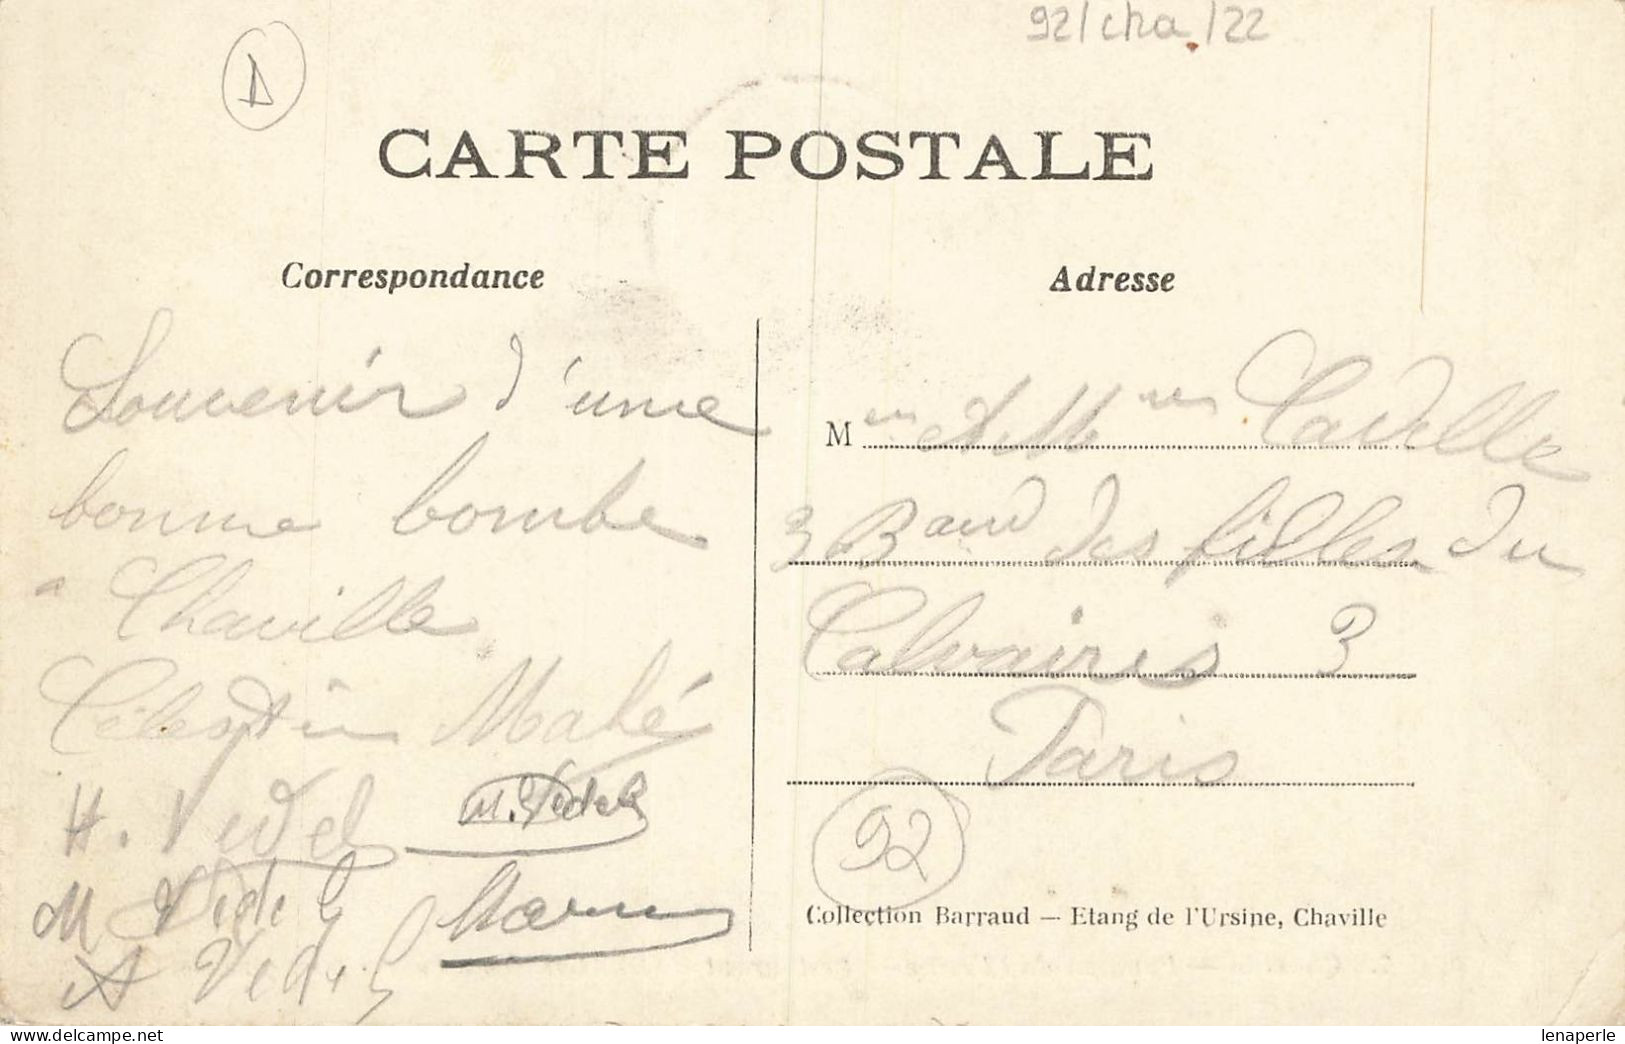 92/cha/22
D
CARTE POSTALE
Correspondance
Souvenir d'une
bonne bombe
a Chaville
Célestin Mahé
H. Vedel M. Vedel
M Vedel
A Vedel
Adresse
M
3 Bard des filles du
Calvaires 3
Paris
92
Collection Barraud — Etang de l'Ursine, Chaville
lenaperle